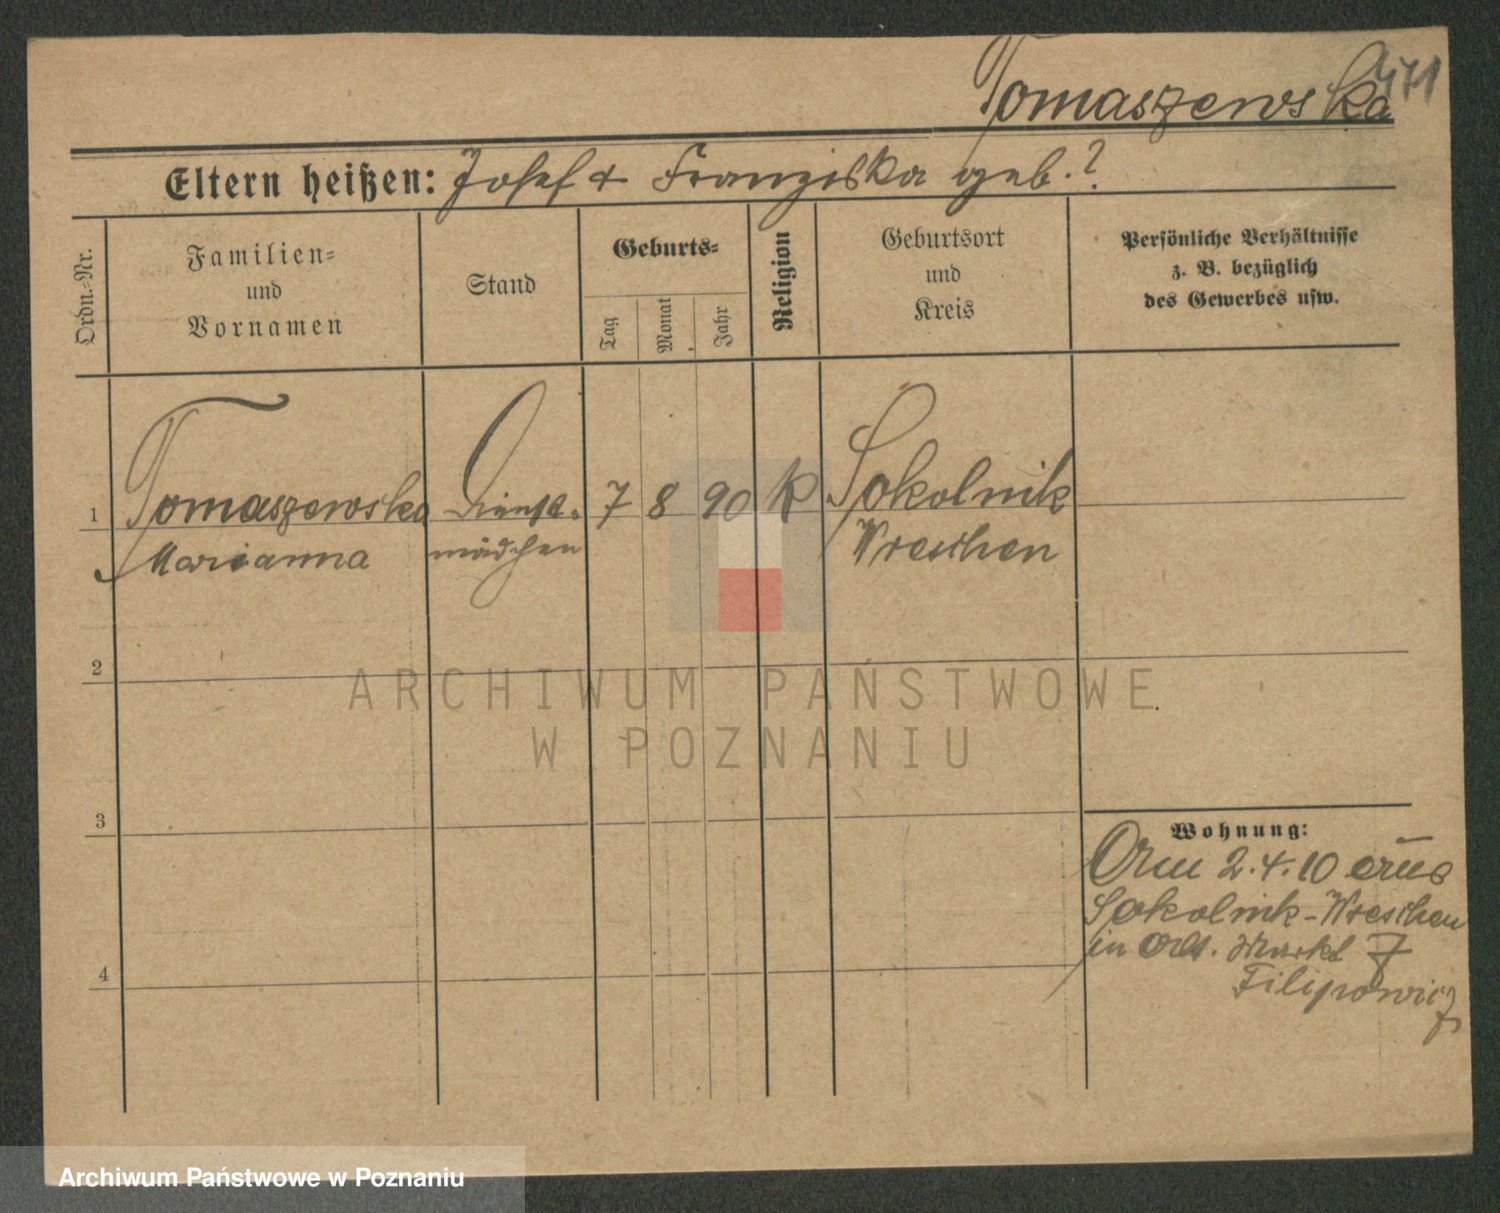 Tomaszewska
Eltern heißen: Josef + Franziska geb. ?
Ordn.-Nr.
Familien-
und
Vornamen
Stand
Geburts-
Tag
Monat
Jahr
Religion
Geburtsort
und
Kreis
Persönliche Verhältnisse
z. B. bezüglich
des Gewerbes usw.
1 Tomaszewska Dienst- 7 8 90 K Sokolnik
Marianna mädchen Wreschen
2
ARCHIWUM PAŃSTWOWE
W POZNANIU
3
4
Wohnung:
Am 2.4.10 aus
Sokolnik-Wreschen
in Alt. Markt 7
Filipowicz
Archiwum Państwowe w Poznaniu